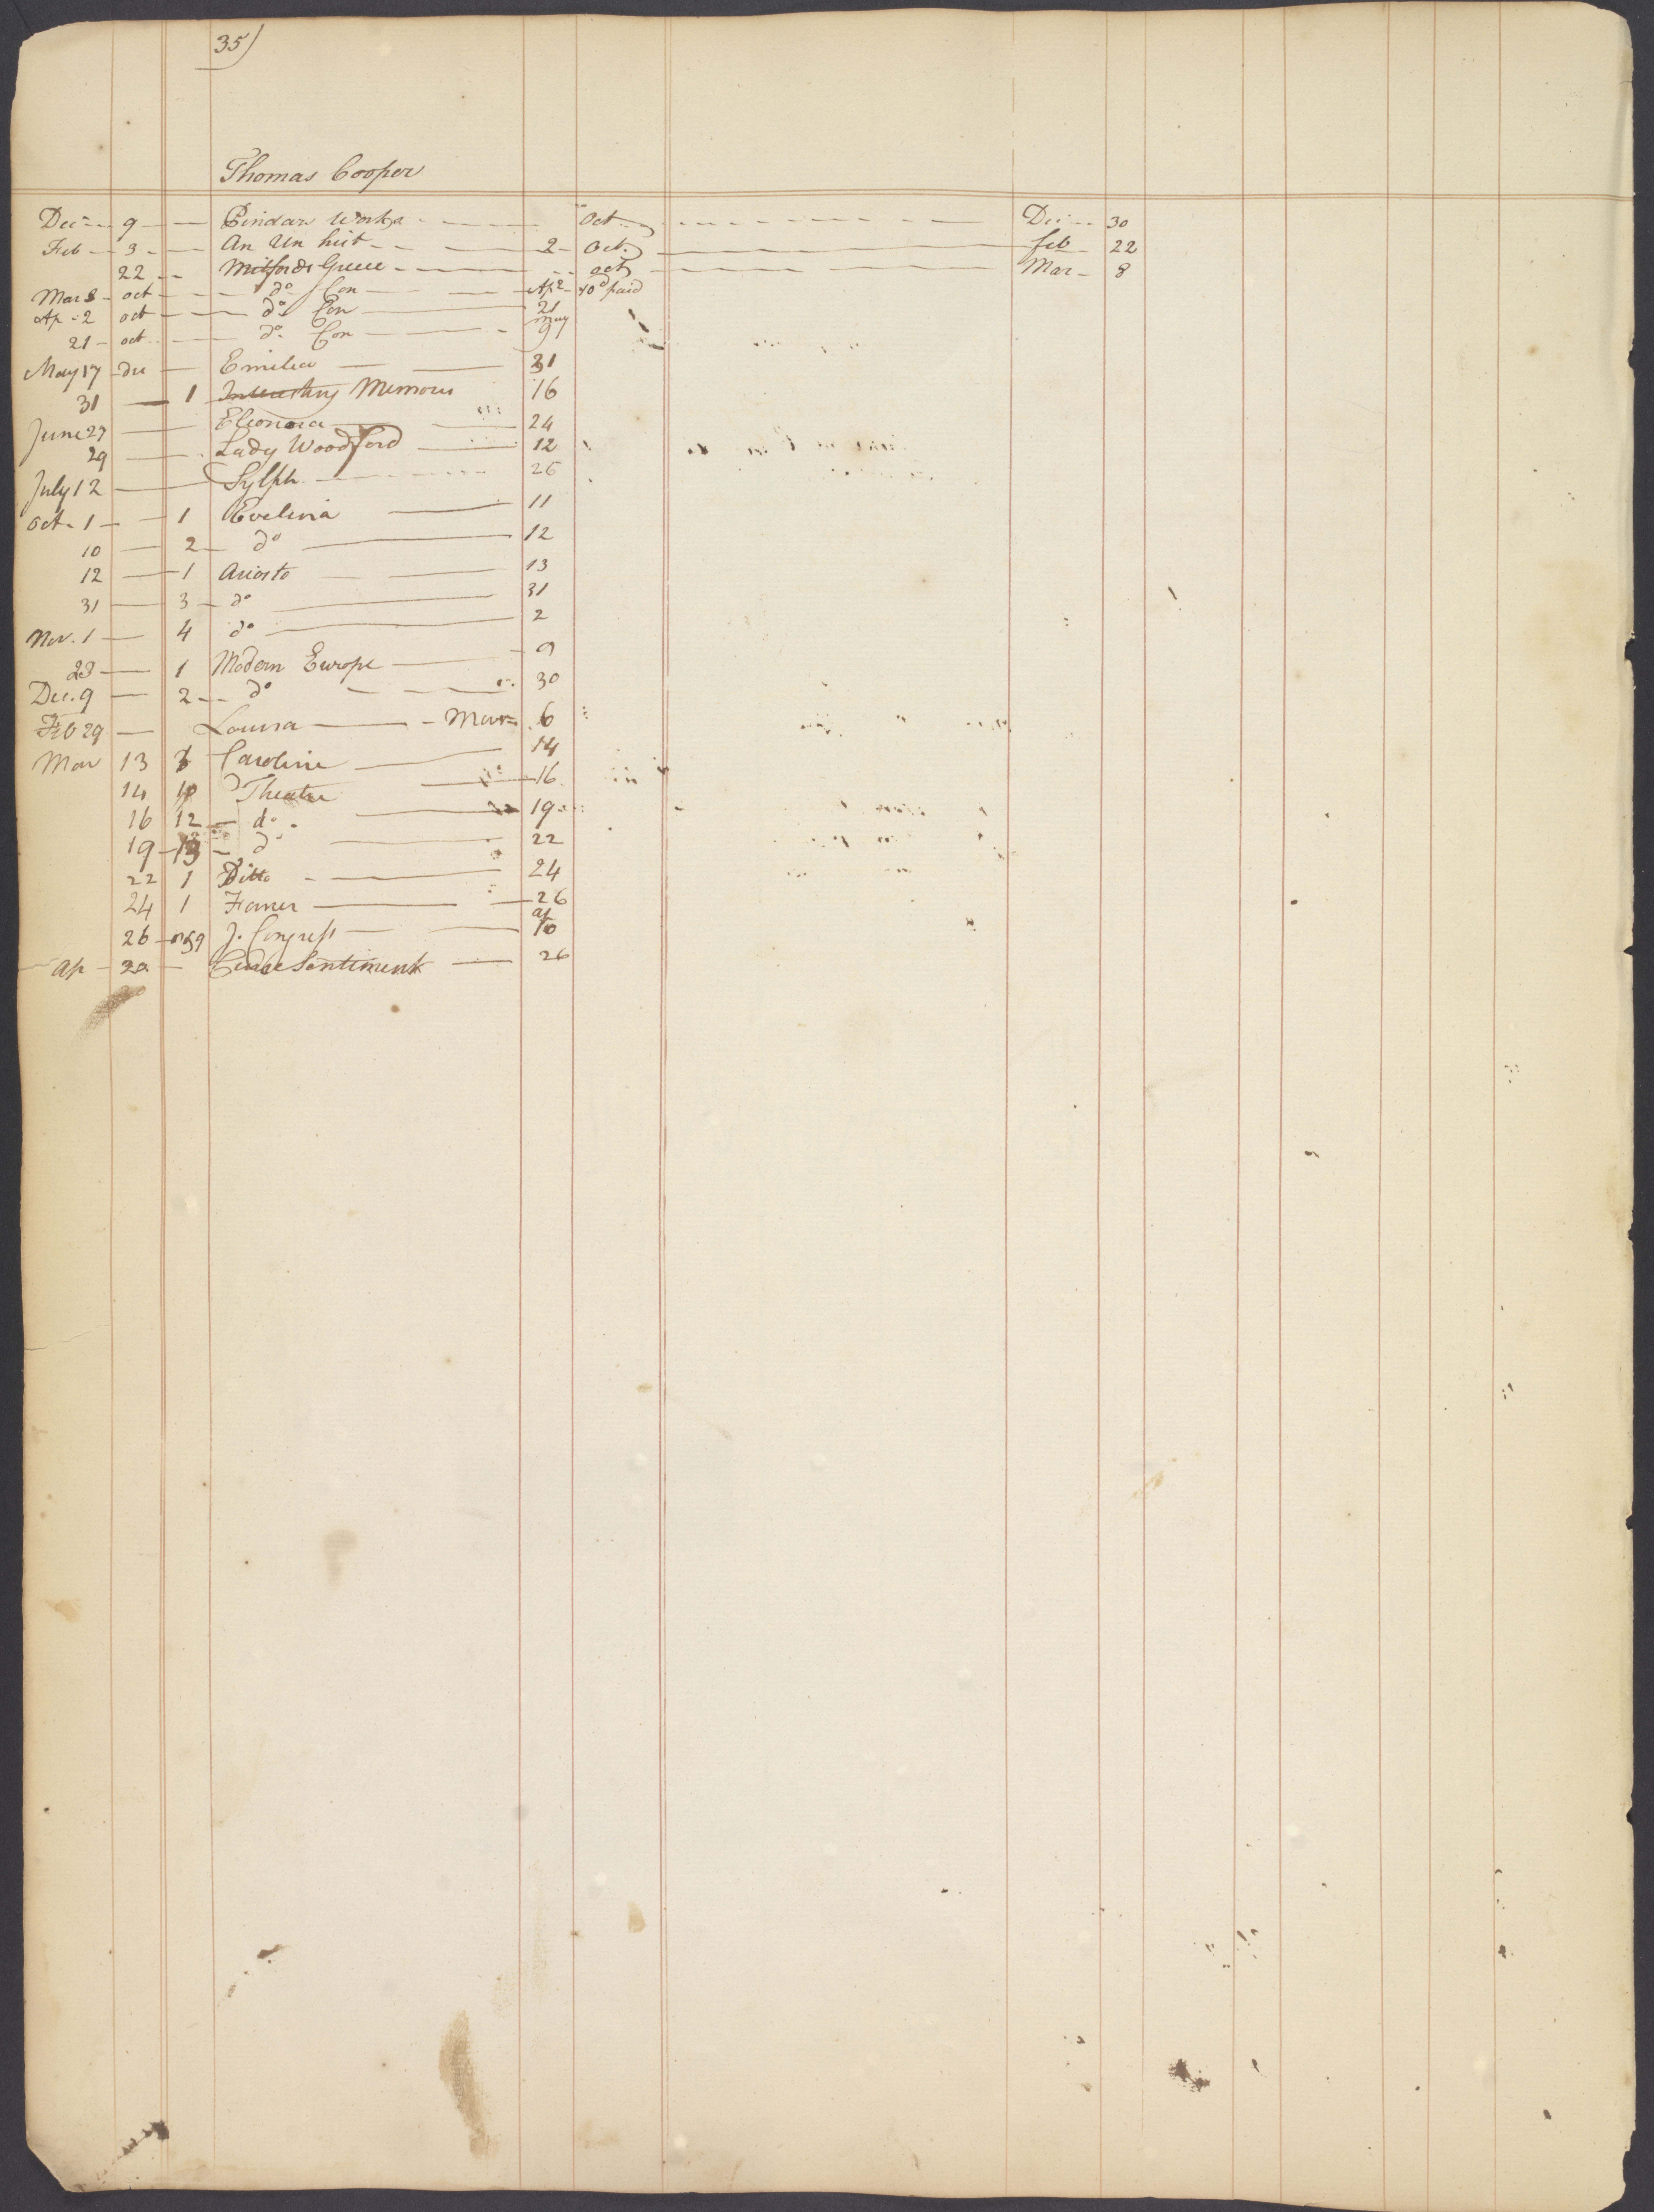 35)
Thomas Cooper
Dec - 9 - Pindars Works - oct - Dec - 30
Feb - 3 - An Un hist - 2 - Oct. - feb - 22
22 - Mitfords Greece - oct - Mar - 8
Mar 8 - oct - do Con - Ap 2 - paid
Ap - 2 oct - do Con - 21
21 - oct - do Con - May 9
May 17 - Emilia - 31
31 - 1 Interesting Memoirs 16
June 27 - Eleonora - 24
29 - Lady Woodford - 12
July 12 - Sylph - 26
Oct. 1 - 1 Evelina - 11
10 - 2 - do - 12
12 - 1 Ariosto - 13
31 - 3 - do - 31
Nov. 1 - 4 do - 2
23 - 1 Modern Europe - 9
Dec. 9 - 2 - do - 30
Feb 29 - Louisa - Mar - 6
Mar 13 Caroline - 14
14 10 Theatre - 16
16 12 - do - 19
19 - 13 - do - 22
22 1 Ditto - 24
24 1 - 26
26 - J. Congress - ap 10
Ap - Sentiment - 26